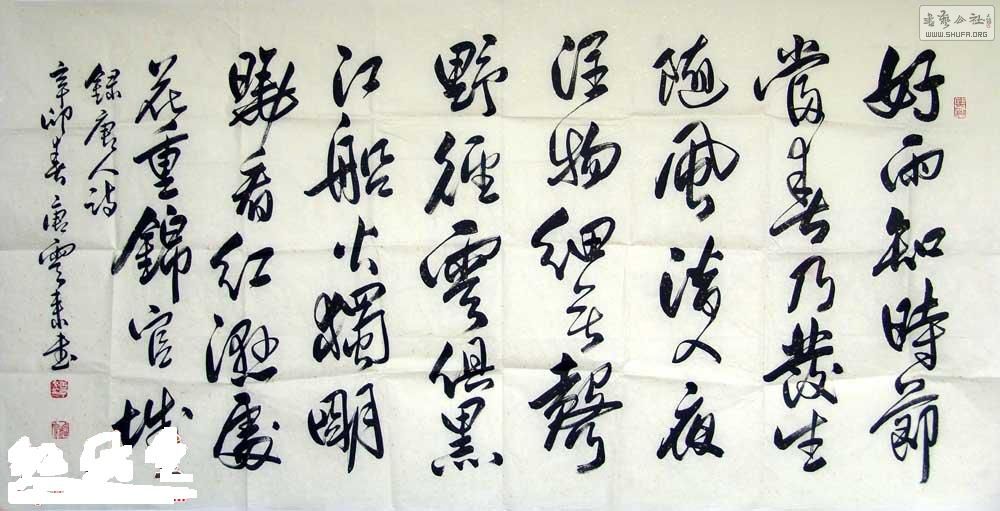 好雨知時節
當春乃發生
隨風潛入夜
潤物細無聲
野徑雲俱黑
江船火獨明
曉看紅濕處
花重錦官城
錄唐人詩
辛卯春唐雲來書
書藝公社
WWW.SHUFA.ORG